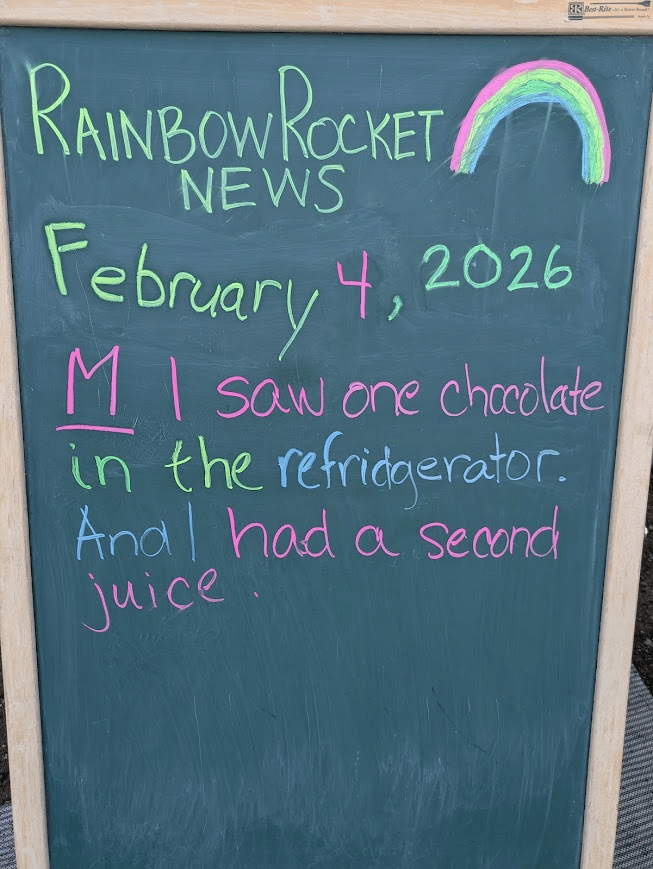 Best-Rite
RAINBOW ROCKET
NEWS
February 4, 2026
M I saw one chocolate
in the refridgerator.
And I had a second
juice.